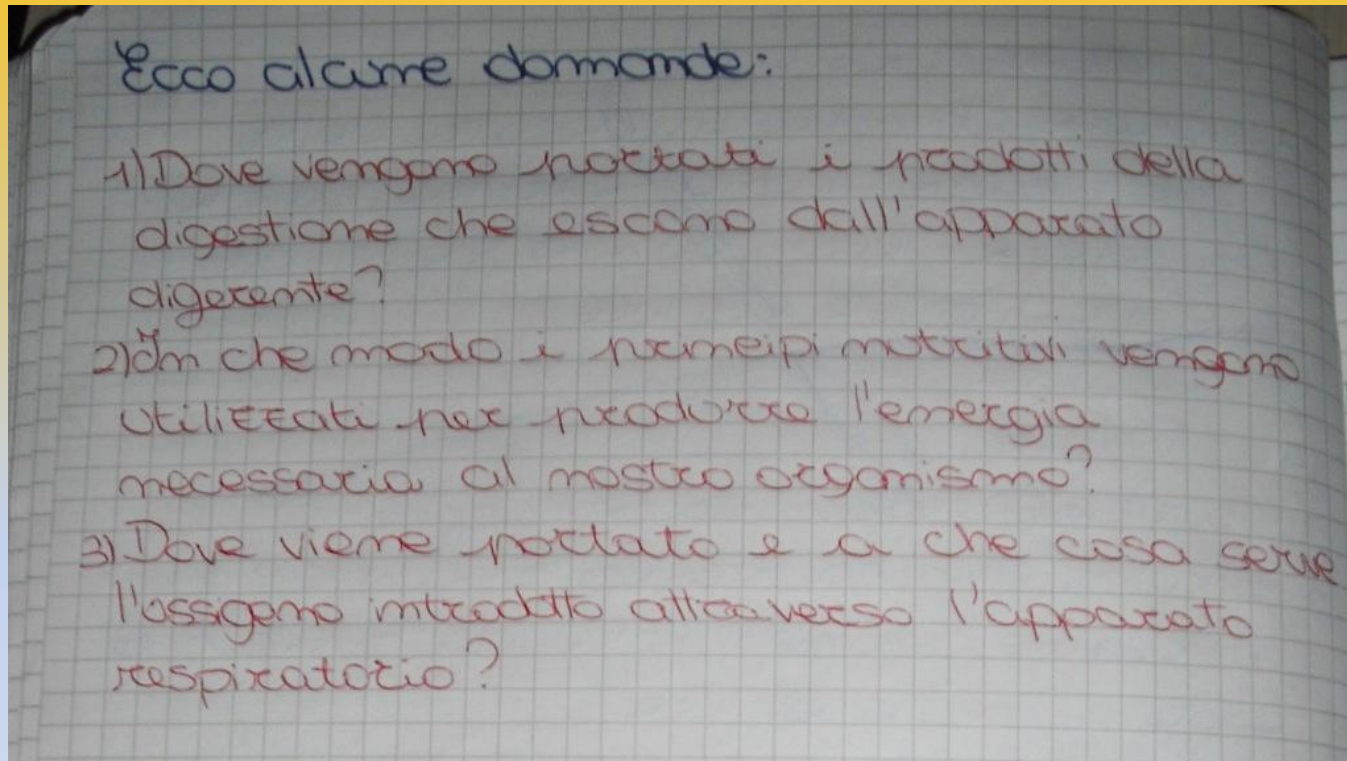 Ecco alcune domande:
1) Dove vengono portati i prodotti della
digestione che escono dall'apparato
digerente?
2) In che modo i principi nutritivi vengono
utilizzati per produrre l'energia
necessaria al nostro organismo?
3) Dove viene portato e a che cosa serve
l'ossigeno introdotto attraverso l'apparato
respiratorio?